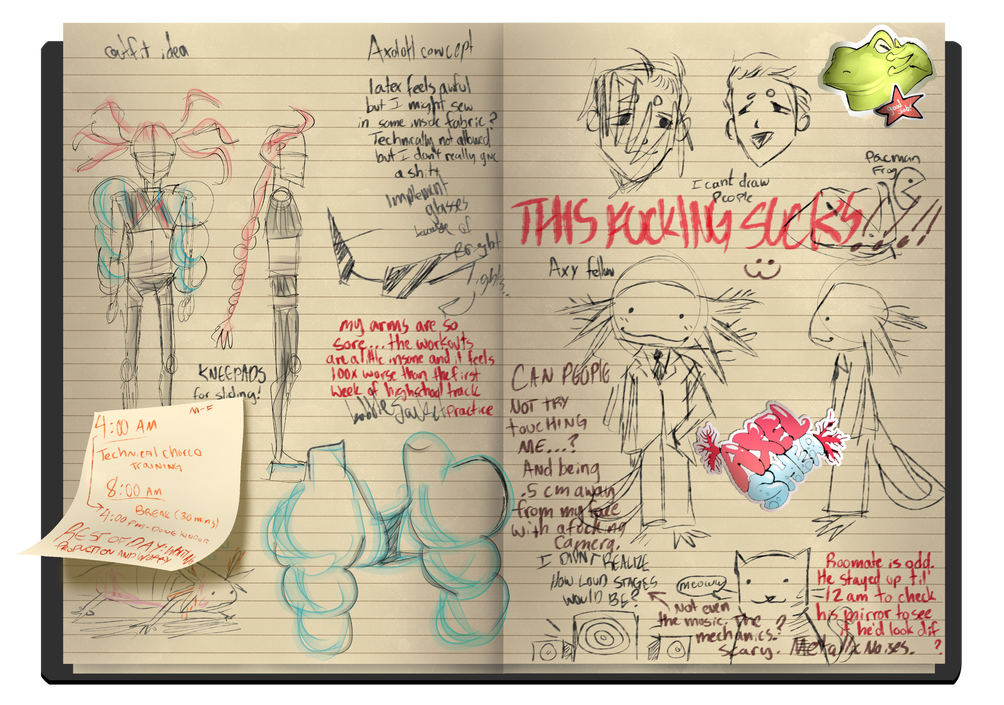 outfit idea
Axolotl concept
latex feels awful
but I might sew
in some inside fabric?
Technically not allowed
but I don't really give
a shit
Implement
glasses
because of
Bright
lights..
my arms are so
sore... the workouts
are a little insane and it feels
100x worse than the first
week of highschool track
practice
KNEEPADS
for sliding!
M-F
4:00 AM
Technical choreo
TRAINING
8:00 AM
BREAK (30 mins)
4:00 PM-
REST OF DAY:
PRODUCTION AND
I cant draw
People
Pacman
Frog
THIS FUCKING SUCKS
Axy fellow
CAN PEOPLE
NOT TRY
TOUCHING
ME...?
And being
.5 cm away
from my face
with a fucking
Camera.
I DIDN'T REALIZE
HOW LOUD STAGES
WOULD BE?
Not even
the music, the
mechanics?
Scary. Metallic Noises.
meoww
AXEL
Roomate is odd.
He stayed up til'
12 am to check
his mirror to see
if he'd look dif
?